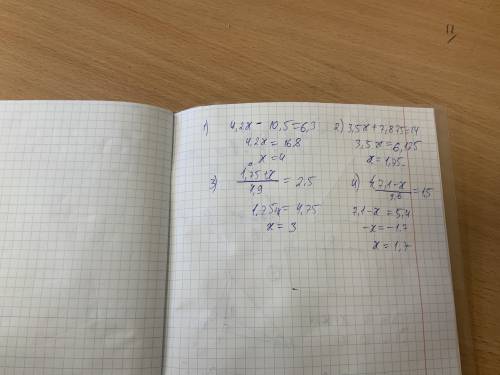 1) 4,2x - 10,5 = 6,3
4,2x = 16,8
x = 4
2) 3,5x + 7,875 = 14
3,5x = 6,125
x = 1,75
3) 1,75+x / 1,9 = 2,5
1,75x = 4,75
x = 3
4) 7,1-x / 3,6 = 1,5
7,1-x = 5,4
-x = -1,7
x = 1,7